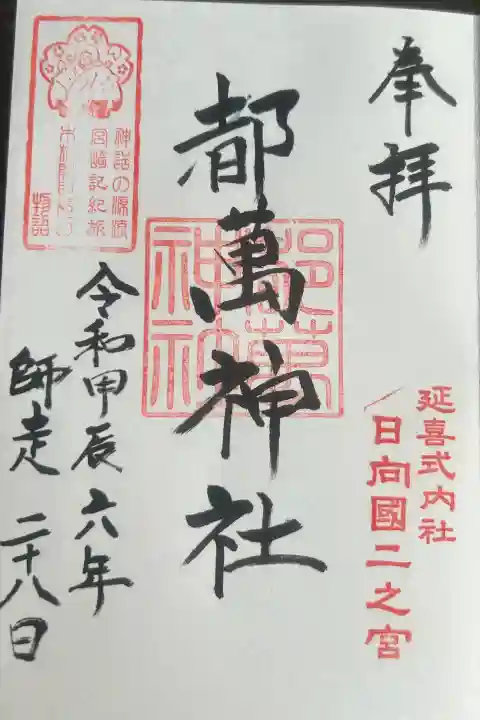 奉拝
延喜式内社
日向國二之宮
都萬神社
都萬神社
神話の源流
宮崎記紀旅
参詣
令和甲辰六年
師走二十八日